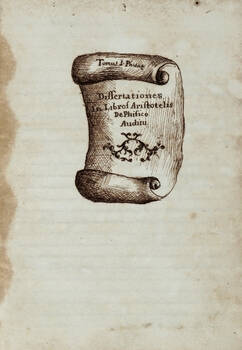 Tomus I. Phisic
Dissertationes
In Libros Aristotelis
De Phisico
Auditu